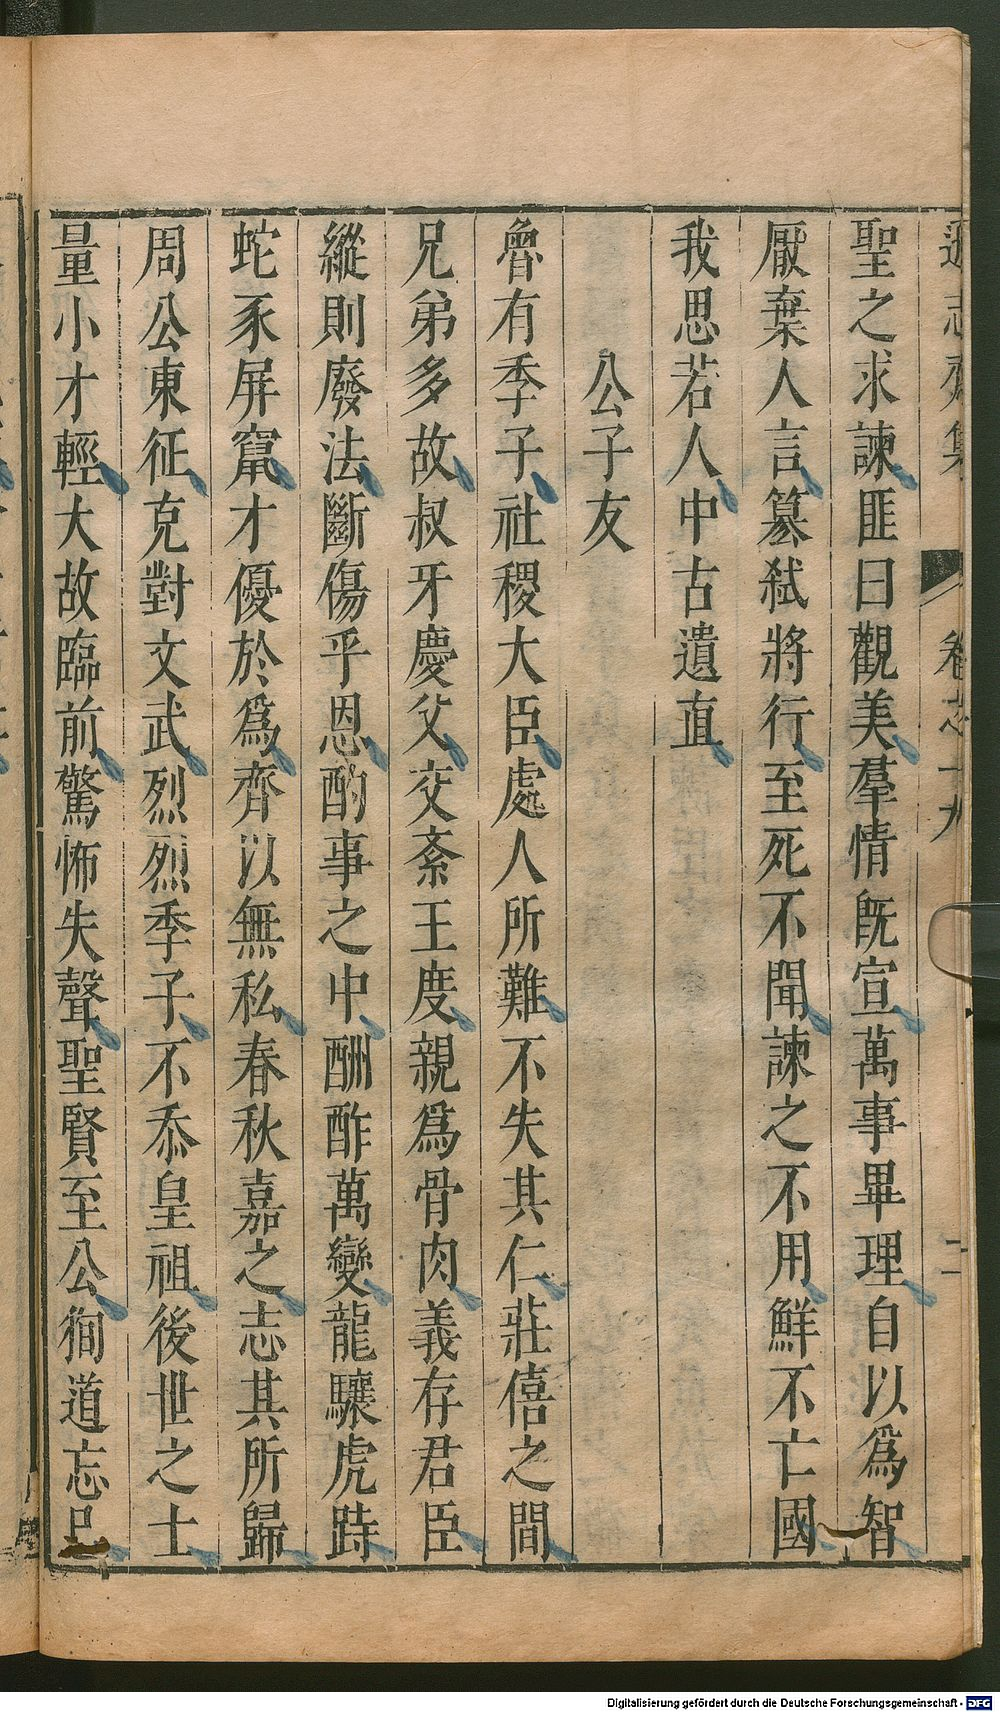 遜志齋集
卷之十九
二
聖之求諫匪曰觀美羣情旣宣萬事畢理自以爲智
厭棄人言篡弑將行至死不聞諫之不用鮮不亡國
我思若人中古遺直
公子友
魯有季子社稷大臣處人所難不失其仁莊僖之間
兄弟多故叔牙慶父交紊王度親爲骨肉義存君臣
縱則廢法斷傷乎恩酌事之中酬酢萬變龍驤虎跱
蛇豕屏竄才優於爲齊以無私春秋嘉之志其所歸
周公東征克對文武烈烈季子不忝皇祖後世之士
量小才輕大故臨前驚怖失聲聖賢至公徇道忘己
Digitalisierung gefördert durch die Deutsche Forschungsgemeinschaft - DFG